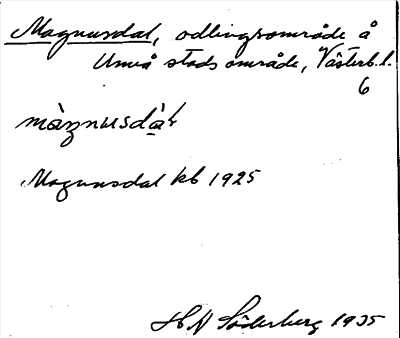 Magnusdal, odlingsområde å
Umeå stads område, Västerb. l.
6
màŋnusdàɫ
Magnusdal kb 1925
H N Söderberg 1935